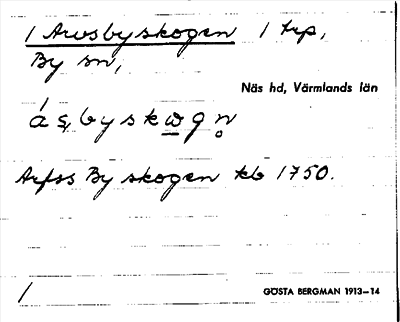 1 Arvsbyskogen 1 trp,
By sn,
Näs hd, Värmlands län
áșbyskωgn̥
Arfss By skogen kb 1750.
/
GÖSTA BERGMAN 1913–14